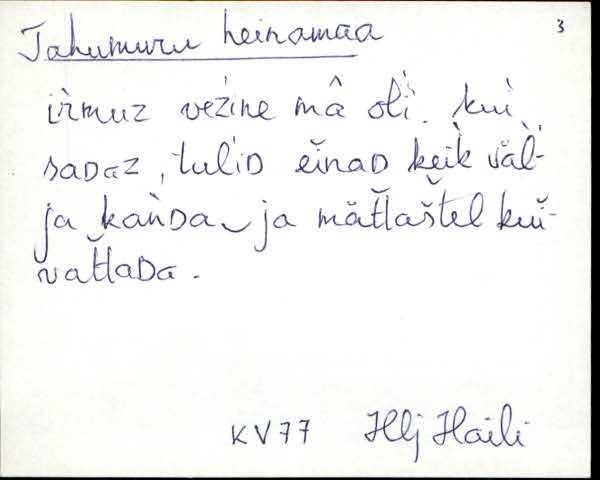 3
Tahumuru heinamaa
iŕmuz vezine mâ oli. kui
sadaz, tulid eìnad keik väl-
ja kańda ja mättaštel kui-
vattada.
KV77 Hlj Haili